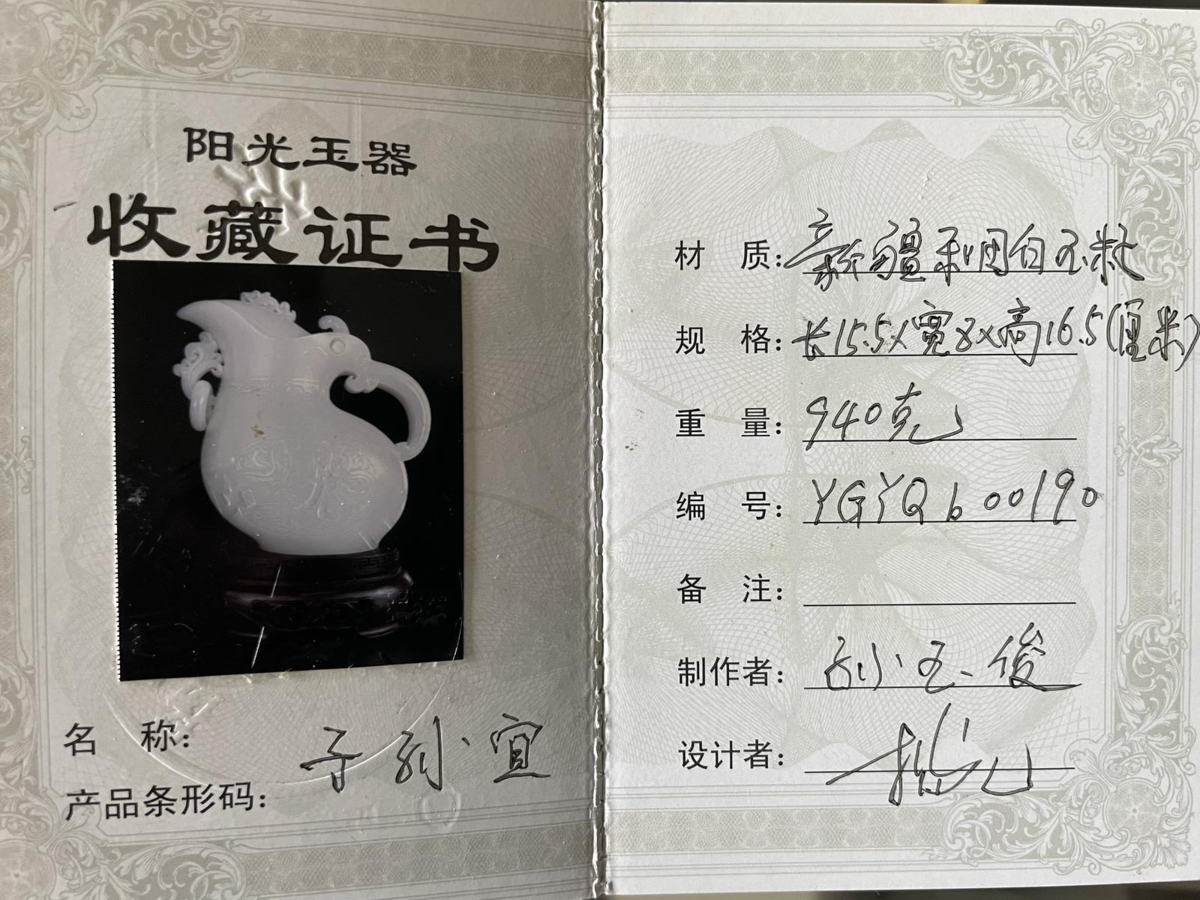 阳光玉器
收藏证书
名 称： 子孙宜
产品条形码：
材 质：新疆和田白玉籽
规 格：长15.5×宽8×高16.5(厘米)
重 量：940克
编 号：YGYQb00190
备 注：
制作者：孙玉俊
设计者：